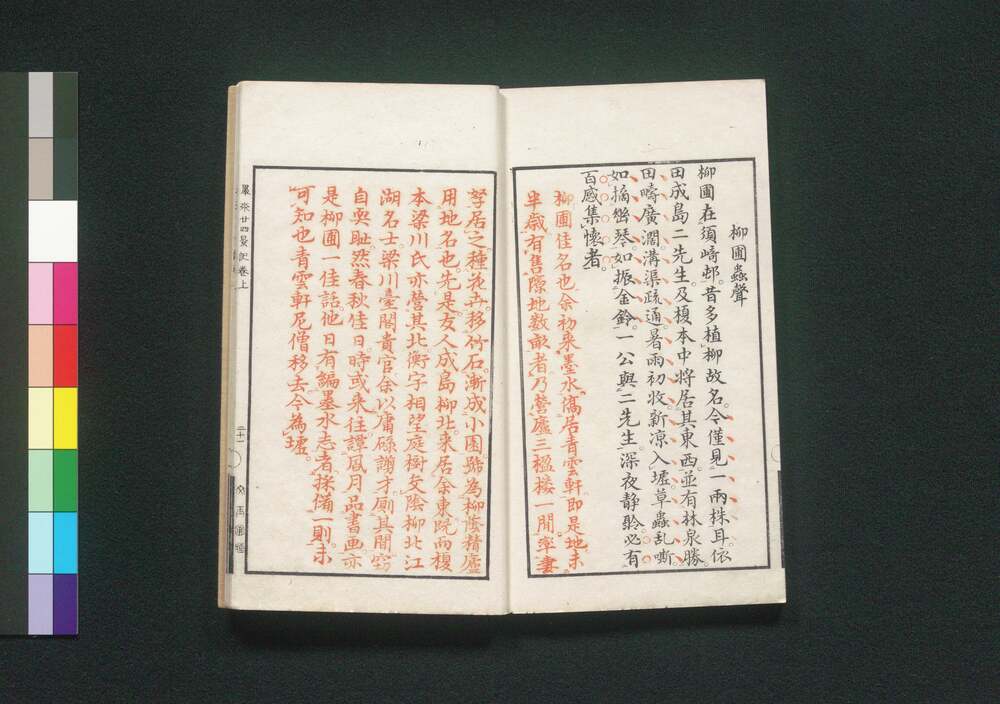 柳圃蟲聲
柳圃在須崎邨。昔多植柳故名。今僅見一兩株耳。依
田成島二先生。及榎本中將居其東西。並有林泉勝。
田疇廣濶。溝渠疏通。暑雨初收。新凉入墟。草蟲乱嘶。
如搊琴。如振金鈴。一公與二先生。深夜静聆。必有
百感集懷者。
柳圃佳名也。余初来墨水。僑居青雲軒。即是地。未
半歳有售隙地数畝者。乃營廬三楹。楼一間。率妻
孥居之。種花卉。移竹石。漸成小園。號為柳蔭精廬。
用地名也。先是友人成島柳北来居余東。既而榎
本梁川氏亦營其北。衡宇相望。庭樹交陰。柳北江
湖名士。梁川臺閣貴官。余以庸碌謭才厠其間。竊
自耻。然春秋佳日。時或来往譚風月品書画。亦
是柳圃一佳話。他日有編墨水志者。採備一則。未
可知也。青雲軒尼僧移去。今為墟。
墨水廿四景記卷上
二十一